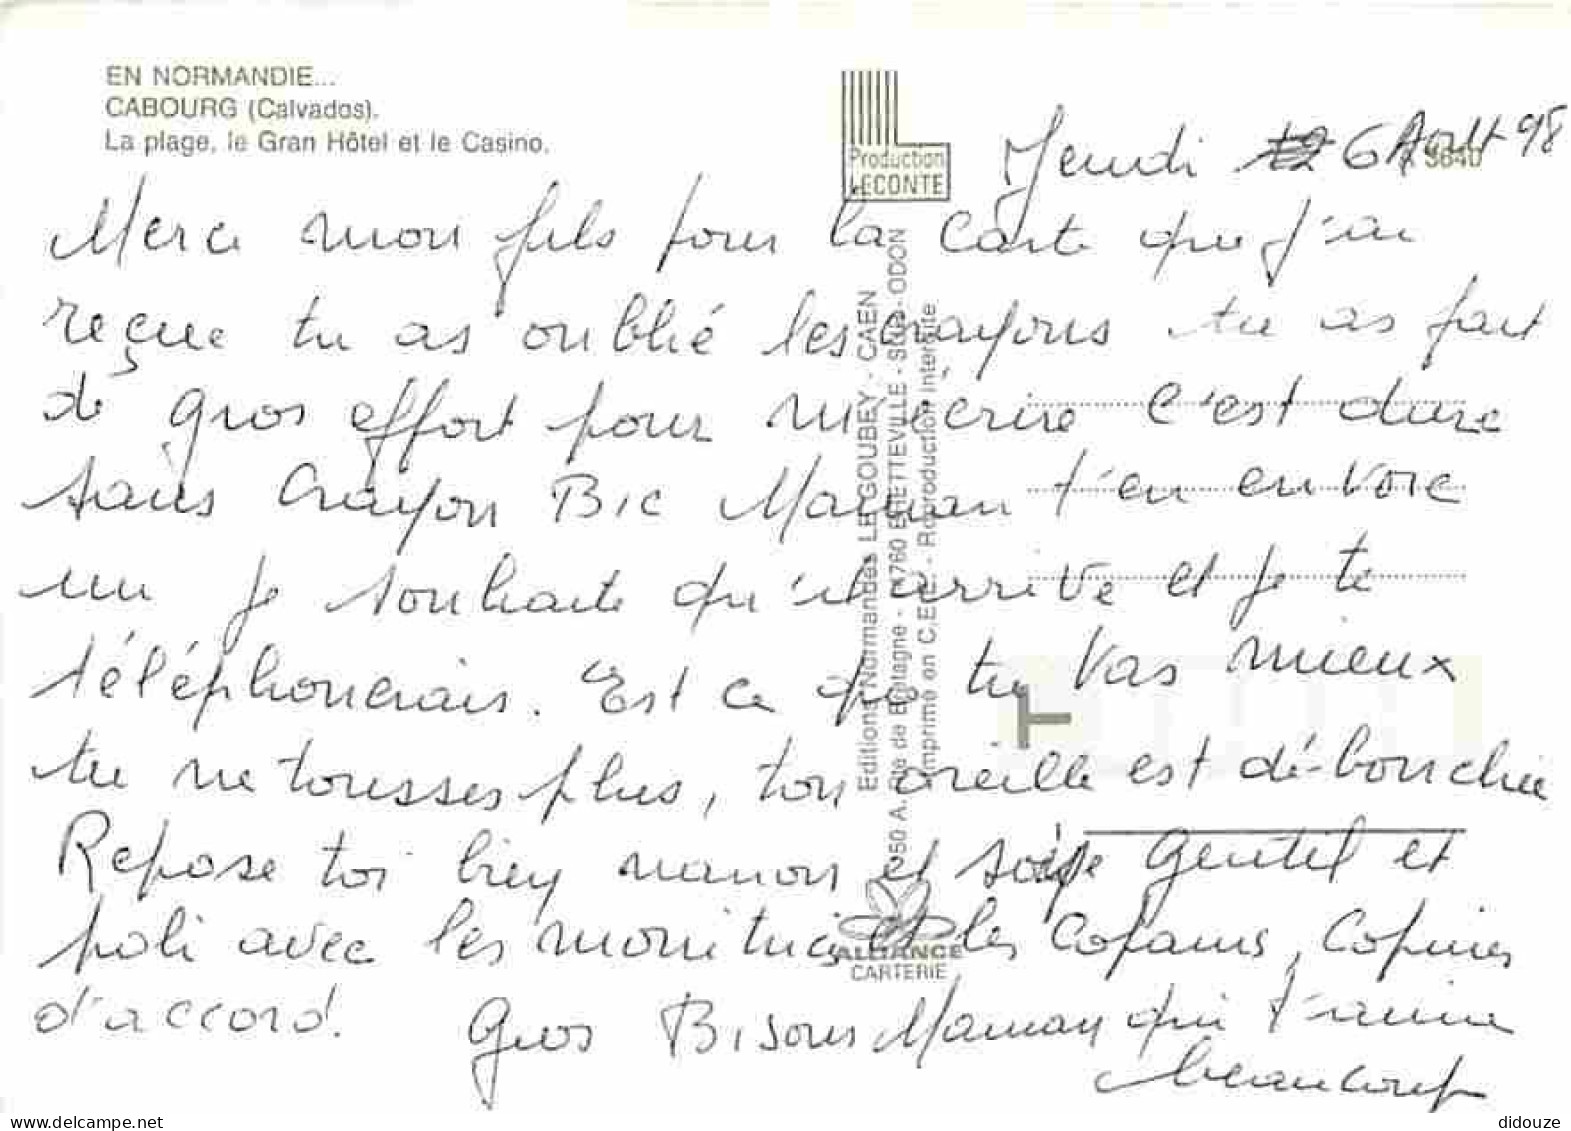 EN NORMANDIE...
CABOURG (Calvados).
La plage, le Gran Hôtel et le Casino.
Production
LECONTE
Jeudi 6 Août 98
Merci mon fils pour la carte que j'ai
reçue tu as oublié les crayons tu as fait
de gros effort pour m'écrire c'est dure
sans Crayon Bic Maman t'en envoie
un je souhaite qu'il arrive et je te
téléphonerais. Est ce que tu vas mieux
tu ne tousses plus, ton oreille est dé-bouchée
Repose toi bien manon et soit gentil et
poli avec les monitrices et les Copains, Copines
d'accord. Gros Bisous Maman qui t'aime
beaucoup
Editions Normandes LE GOUBEY - CAEN
250 A. Rte de Bretagne - 14760 BRETTEVILLE - SUR - ODON
Imprimé en C.E.E. - Reproduction interdite
ALLIANCE
CARTERIE
delcampe.net
didouze